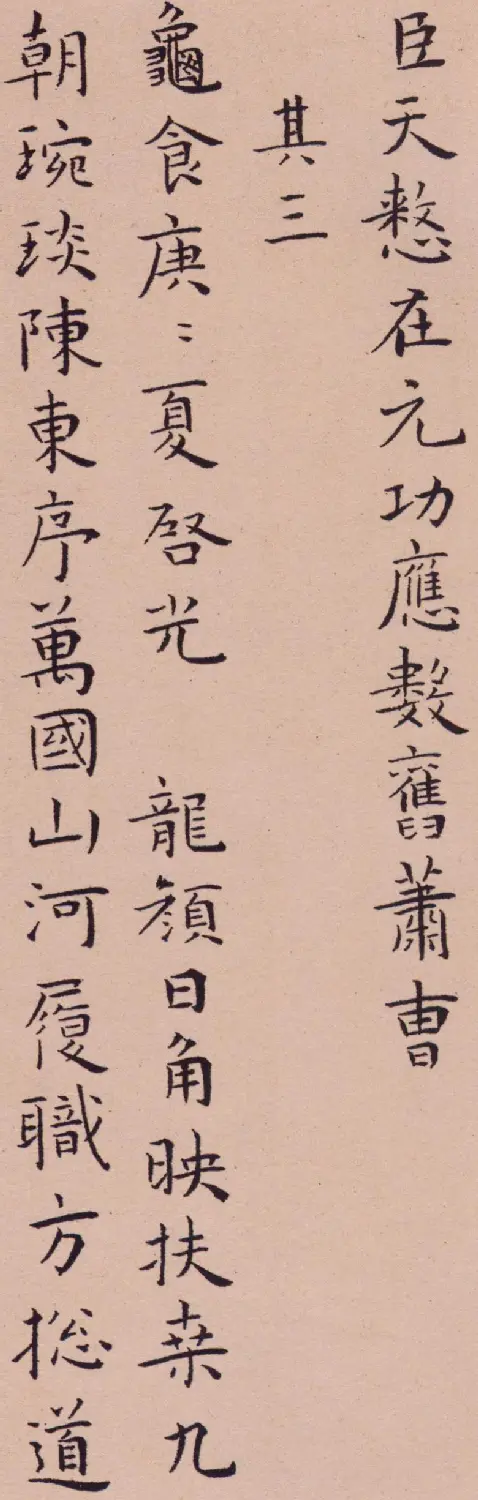 臣天憖在元功應數舊蕭曺
其三
龜食庚〻夏啓光 龍顔日角映扶桒九
朝琬琰陳東序萬國山河履職方捴道